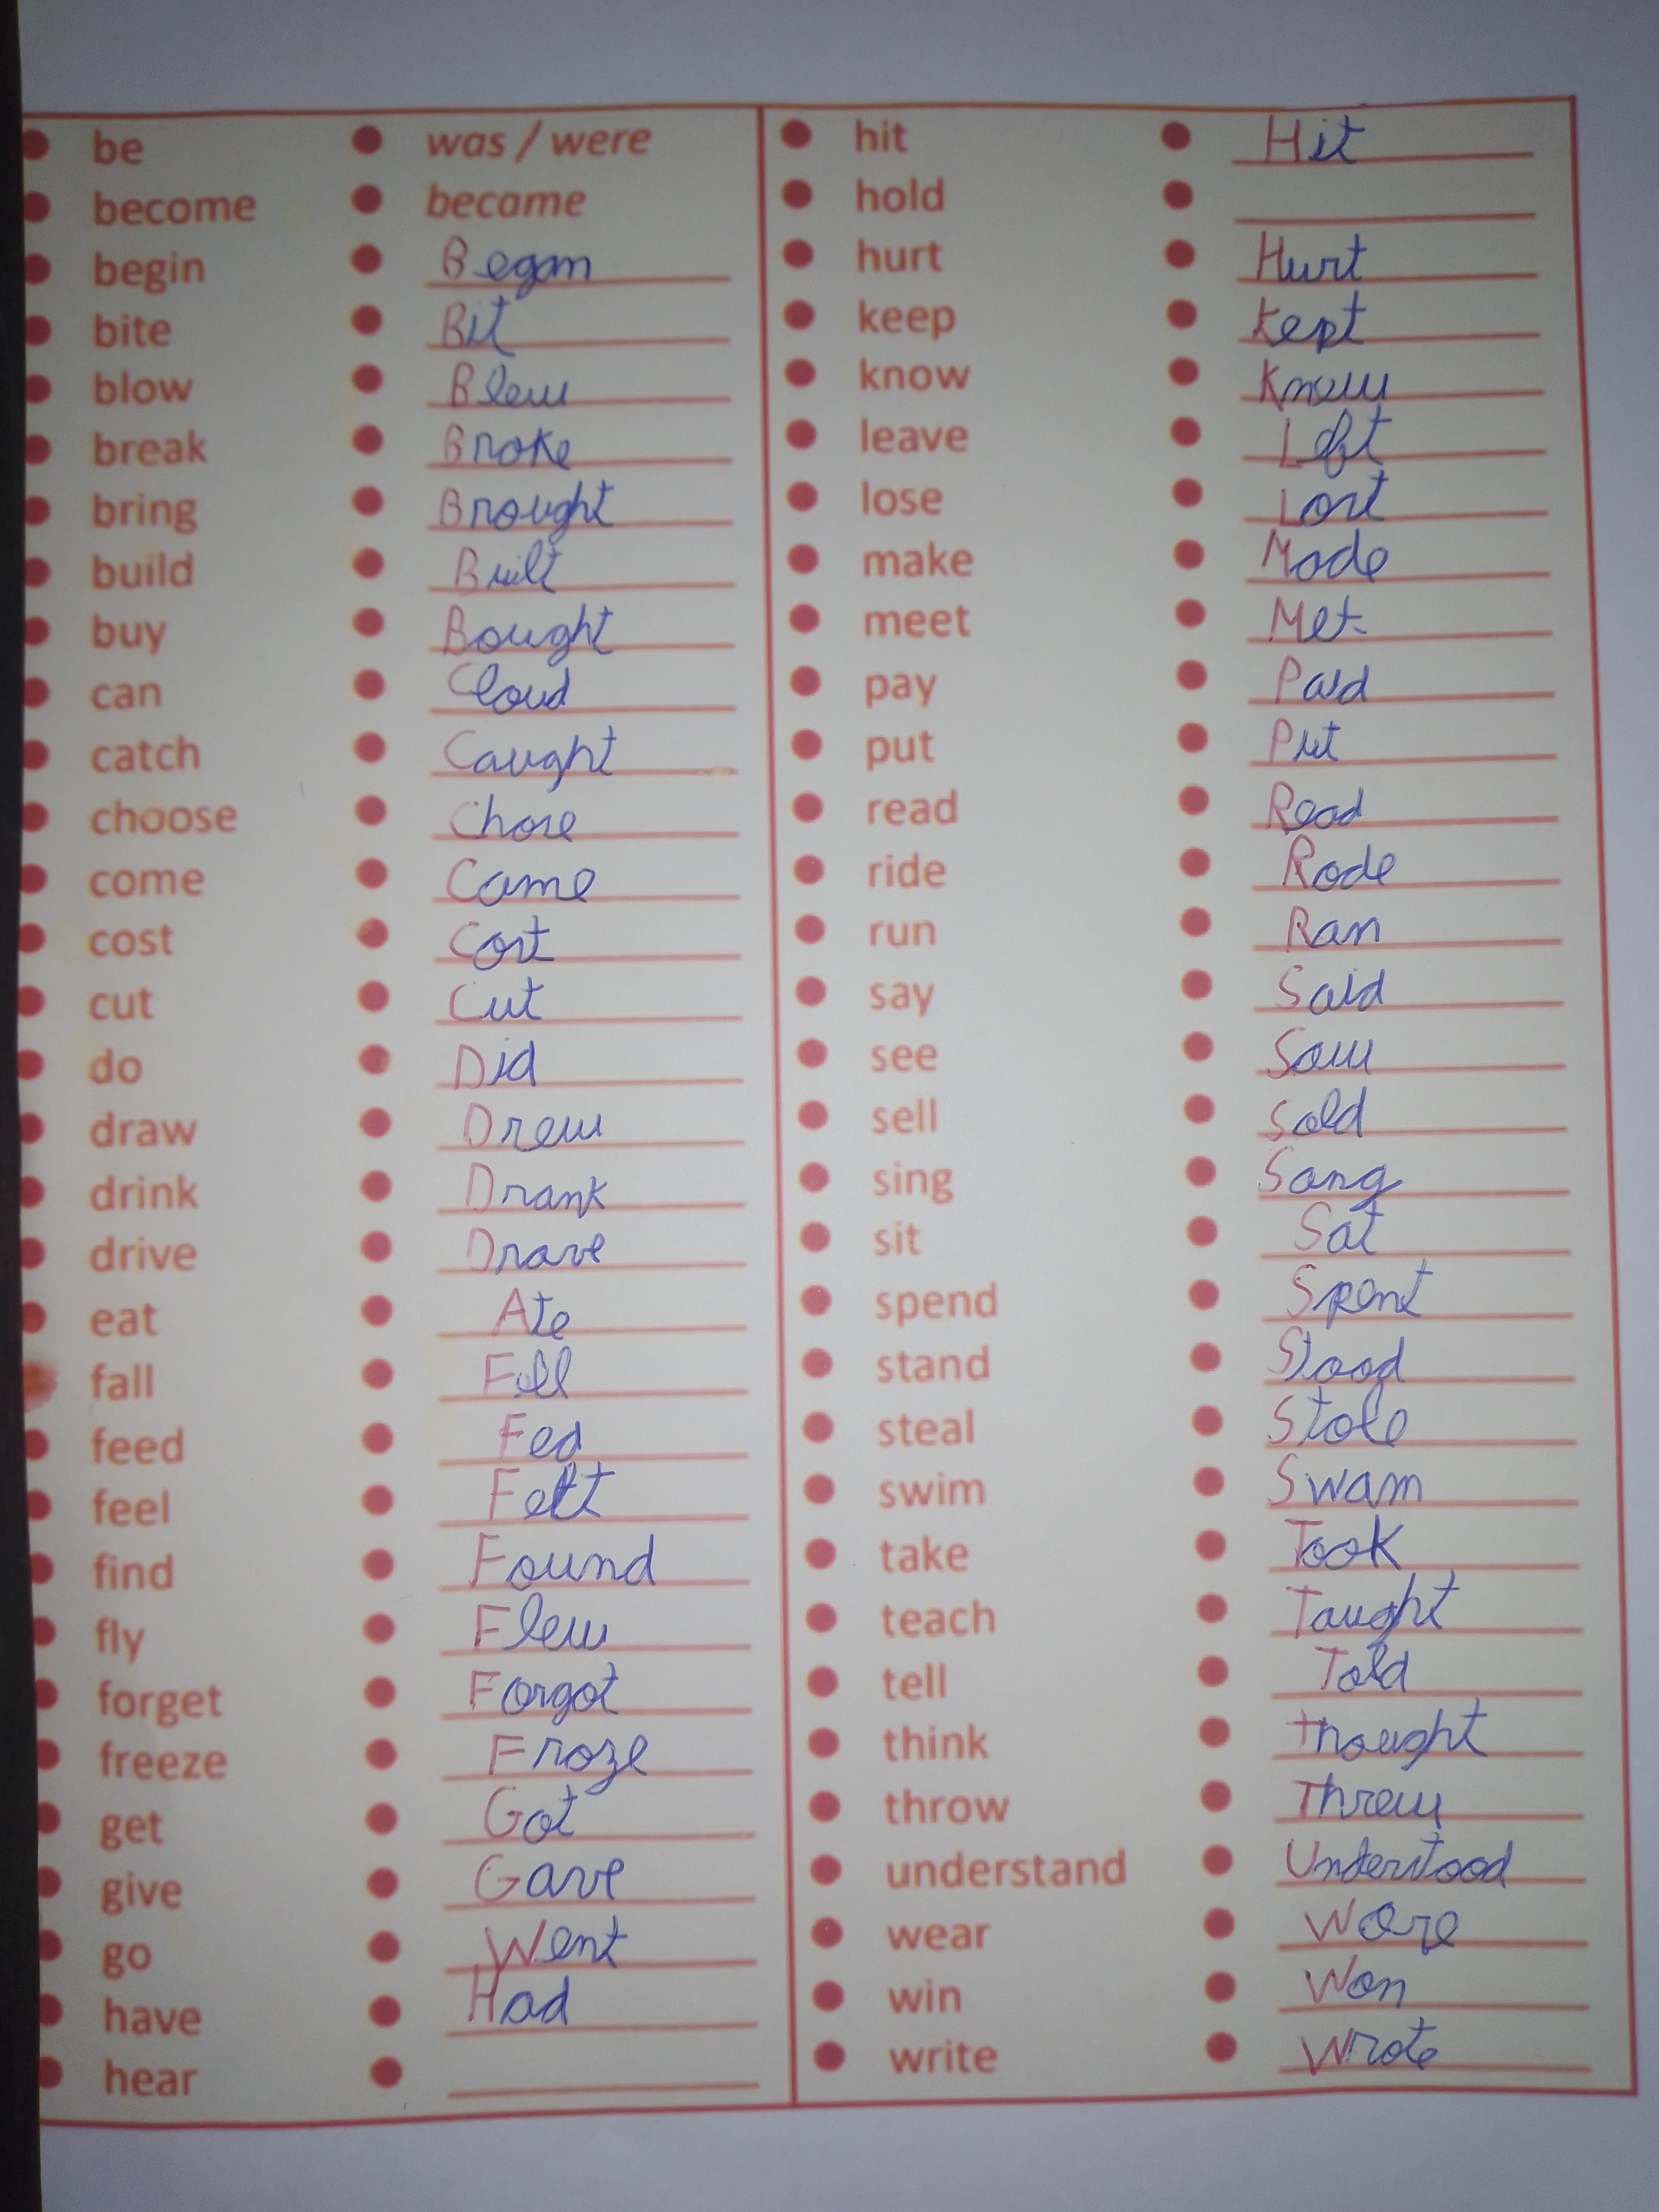 be was / were
become became
begin Began
bite Bit
blow Blew
break Broke
bring Brought
build Built
buy Bought
can Cloud
catch Caught
choose Chose
come Came
cost Cost
cut Cut
do Did
draw Drew
drink Drank
drive Drave
eat Ate
fall Fell
feed Fed
feel Felt
find Found
fly Flew
forget Forgot
freeze Froze
get Got
give Gave
go Went
have Had
hear
hit Hit
hold
hurt Hurt
keep Kept
know Knew
leave Left
lose Lost
make Made
meet Met
pay Paid
put Put
read Read
ride Rode
run Ran
say Said
see Saw
sell Sold
sing Sang
sit Sat
spend Spent
stand Stood
steal Stole
swim Swam
take Took
teach Taught
tell Told
think thought
throw Threw
understand Understood
wear Wore
win Won
write Wrote